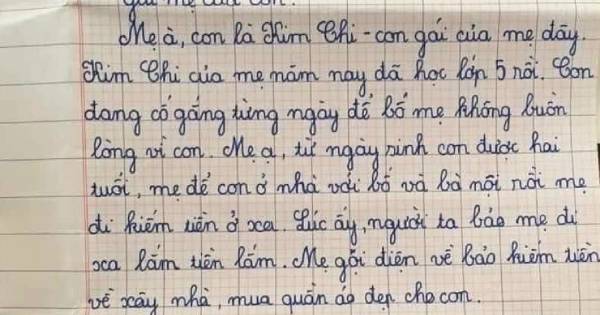 Mẹ à, con là Kim Chi - con gái của mẹ đây.
Kim Chi của mẹ năm nay đã học lớp 5 rồi. Con
đang cố gắng từng ngày để bố mẹ không buồn
lòng vì con. Mẹ ạ, từ ngày sinh con được hai
tuổi, mẹ để con ở nhà với bố và bà nội rồi mẹ
đi kiếm tiền ở xa. Lúc ấy, người ta bảo mẹ đi
xa lắm tiền lắm. Mẹ gọi điện về bảo kiếm tiền
về xây nhà, mua quần áo đẹp cho con.